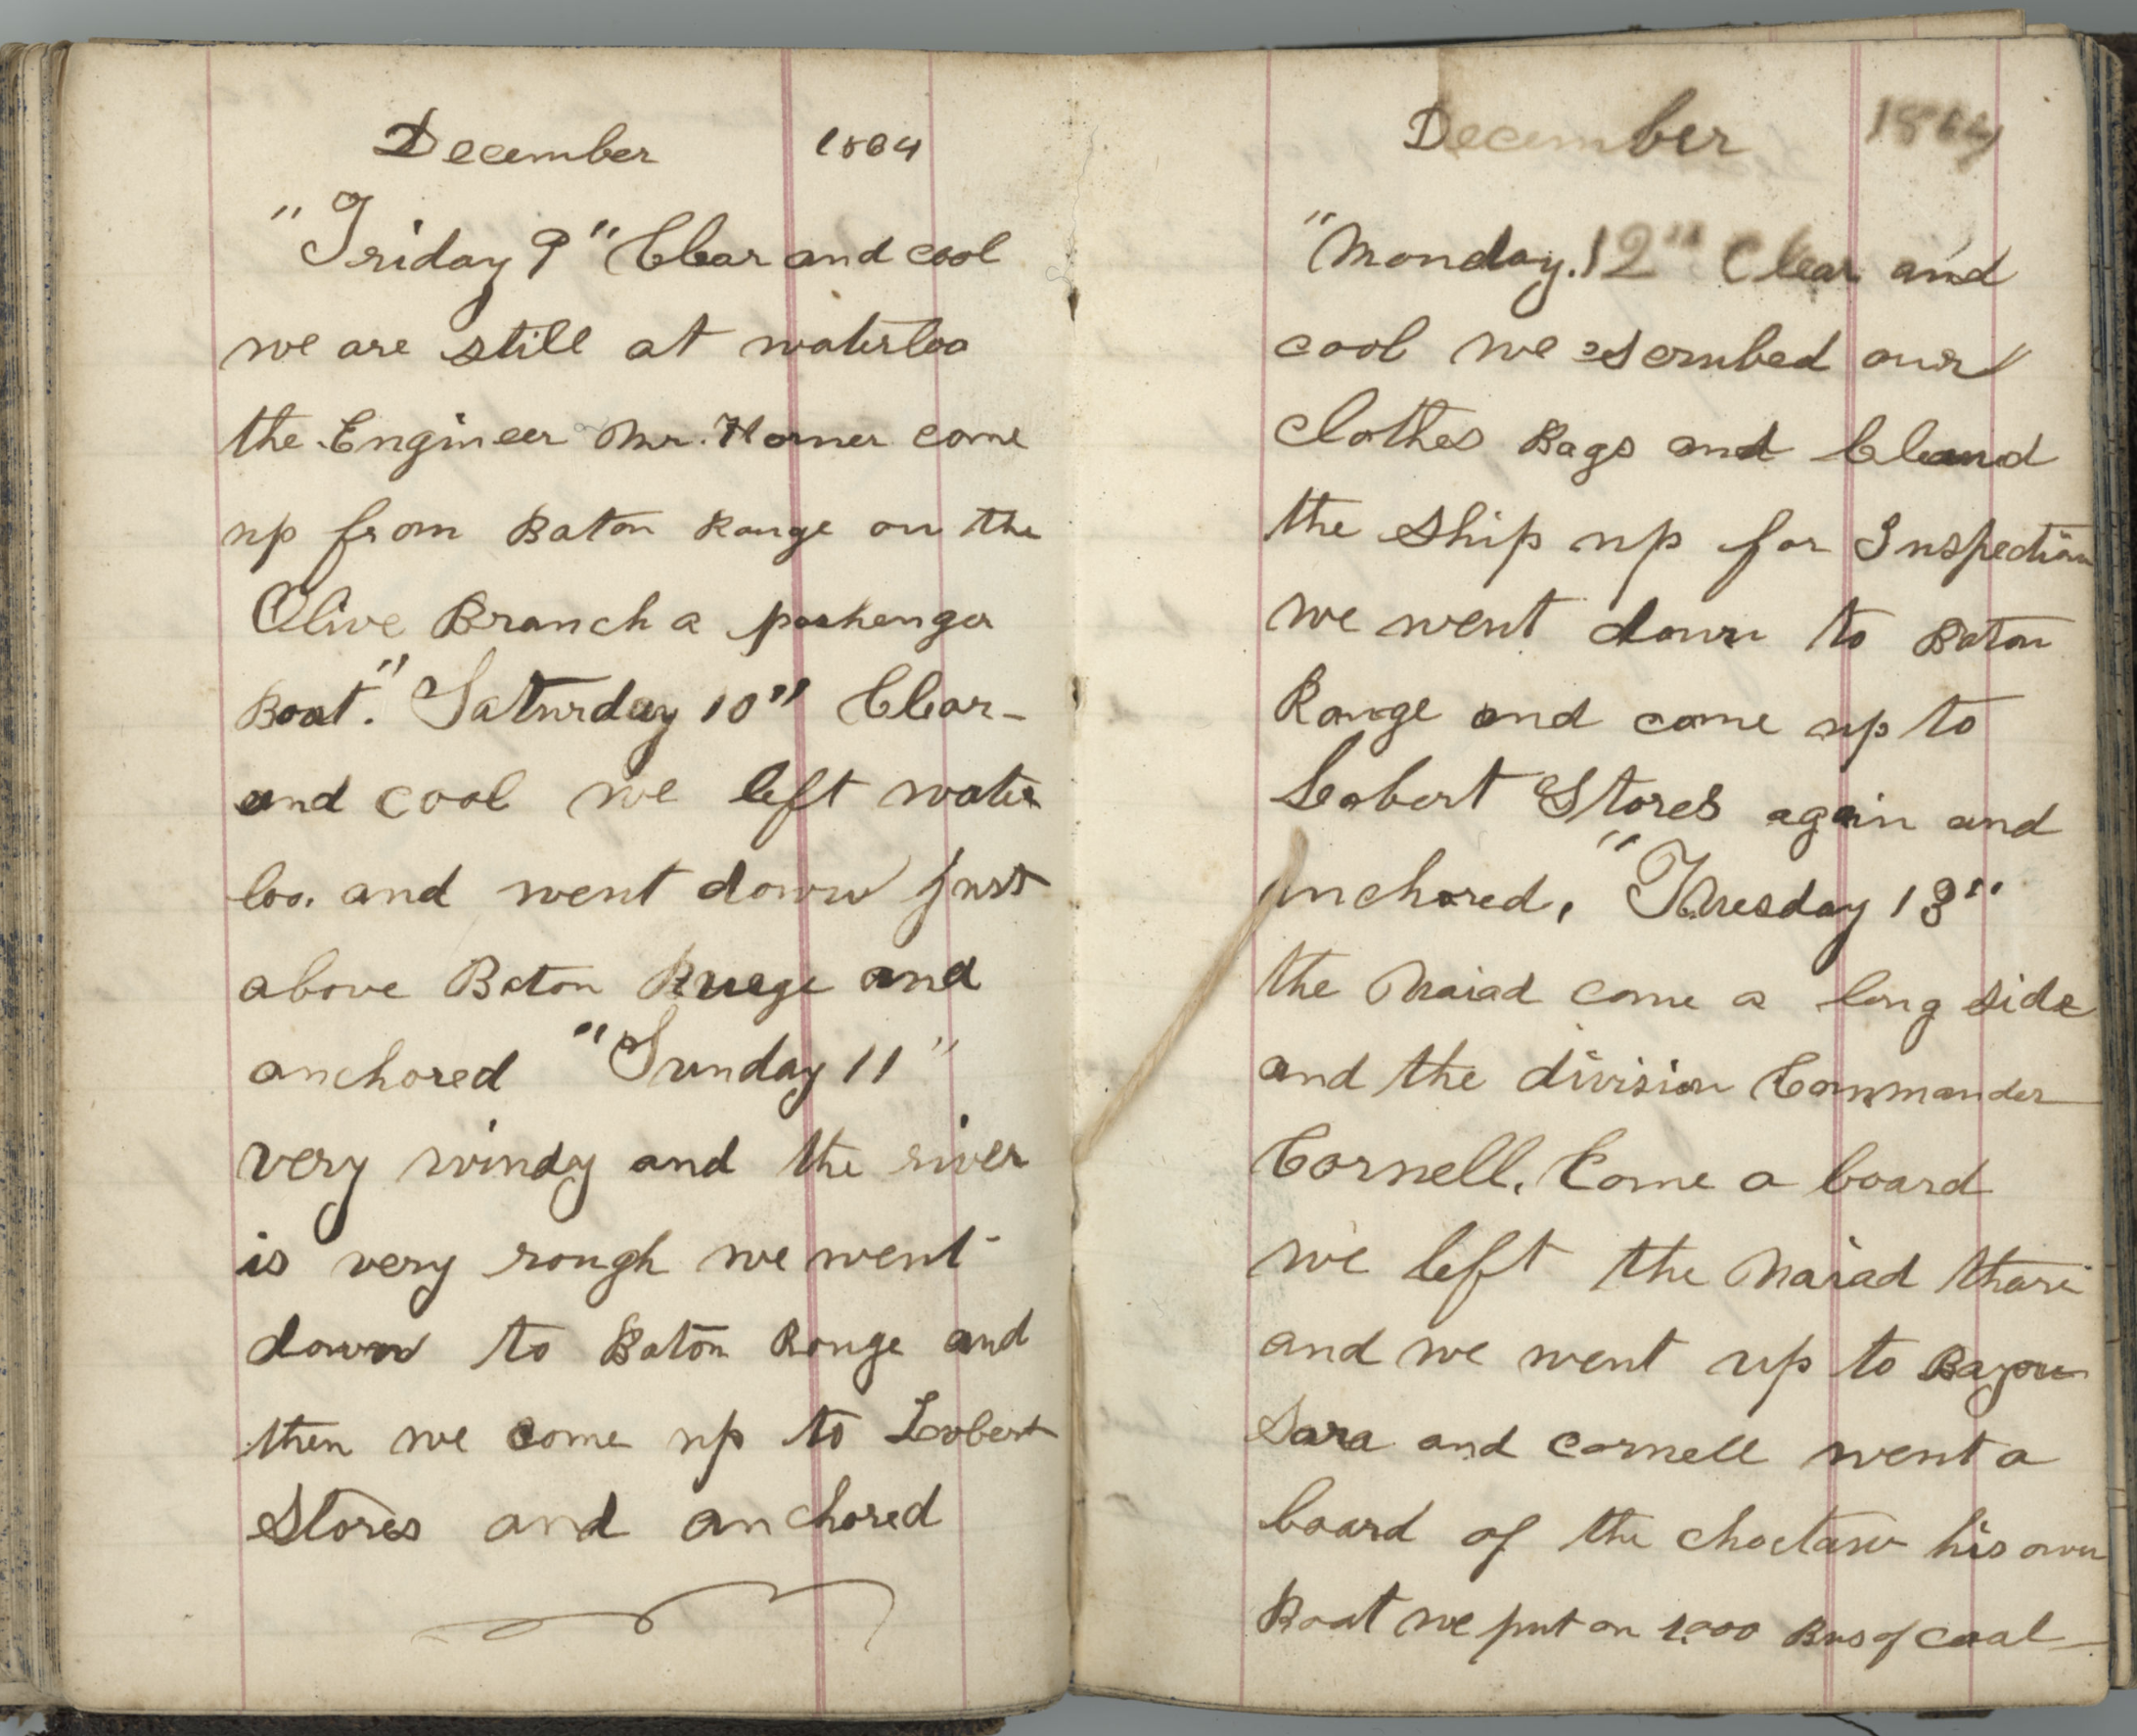 December 1864
"Friday 9" Clear and cool
we are still at waterloo
the Engineer Mr. Horner come
up from Baton Rouge on the
Olive Branch a passenger
Boat." "Saturday 10" Clear-
and cool we left water
loo. and went down just
above Baton Ruege and
anchored "Sunday 11"
very windy and the river
is very rough we went
down to Baton Rouge and
then we come up to Lobert
Stores and anchored
December 1864
"Monday. 12" Clear and
cool we scrubed our
clothes Bags and Cleand
the Ship up for Inspection
we went down to Baton
Rouge and come up to
Lobert Stores again and
anchored, "Tuesday 13"
the Naiad come a long side
and the division Commander
Cornell. Come a board
we left the Naiad thare
and we went up to Bayou
Sara and cornell went a
board of the choctaw his own
Boat we put on 1,000 Bus of coal